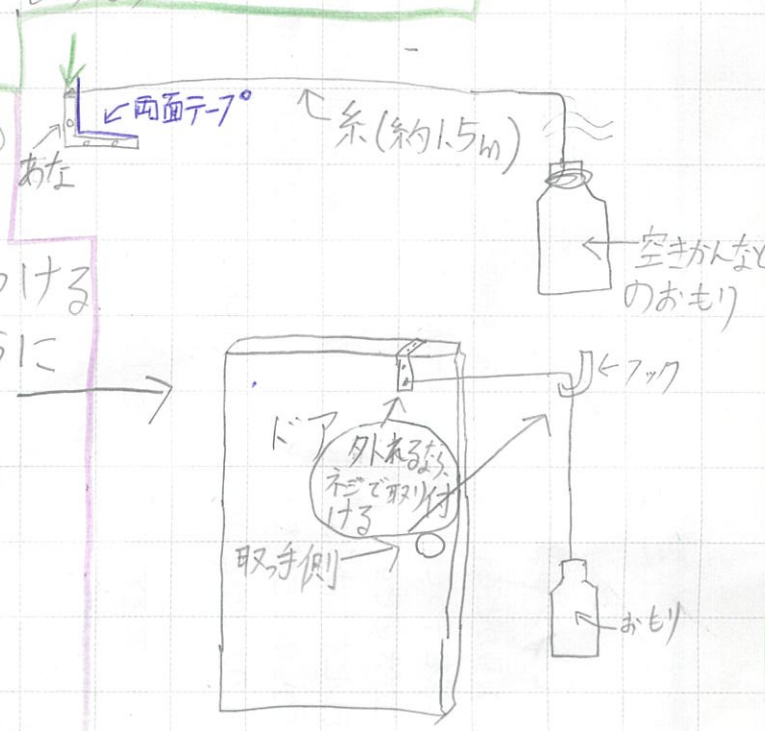 両面テープ
糸(約1.5m)
あな
つける
空きかんなど
のおもり
うに
フック
ドア
外れるなら、
ネジで取り付
ける
取っ手側
おもり